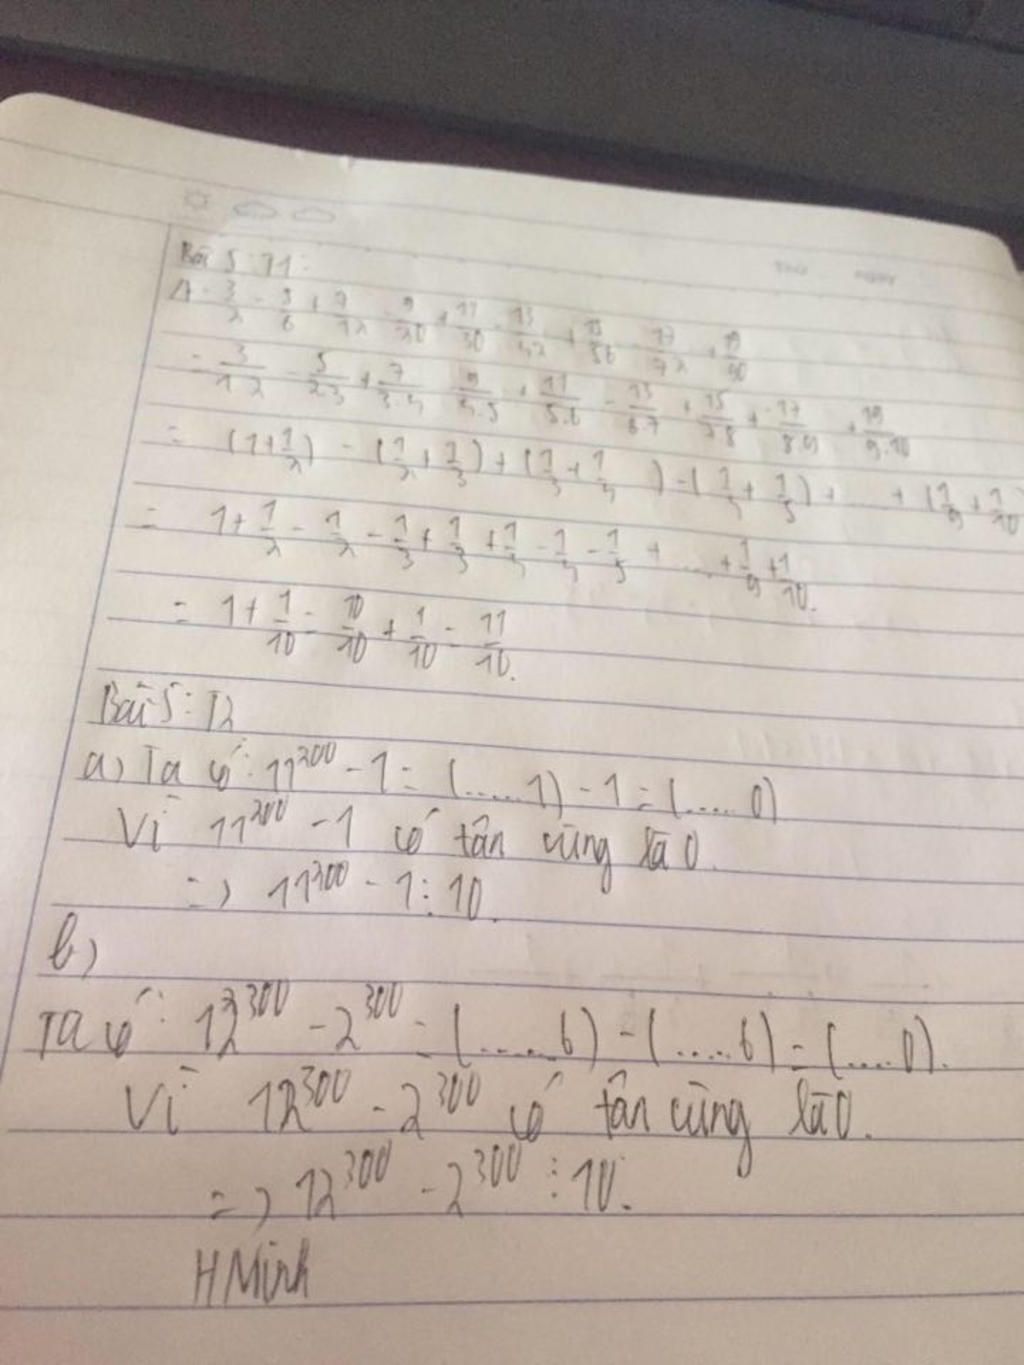 Bài 5: T1:
A = 3/2 - 5/6 + 7/12 - 9/20 + 11/30 - 13/42 + 15/56 - 17/72 + 19/90
= 3/1.2 - 5/2.3 + 7/3.4 - 9/4.5 + 11/5.6 - 13/6.7 + 15/7.8 + -17/8.9 + 19/9.10
= (1+1/2) - (1/2+1/3) + (1/3+1/4) - (1/4+1/5) + ... + (1/9+1/10
= 1+1/2 - 1/2 - 1/3 + 1/3 + 1/4 - 1/4 - 1/5 + ... + 1/9 + 1/10.
= 1 + 1/10 = 10/10 + 1/10 = 11/10.
Bài 5: T2
a) Ta có: 11^300 - 1 = (.....1) - 1 = (....0)
Vì 11^300 - 1 có tận cùng là 0.
=> 11^300 - 1 ⋮ 10.
b)
Ta có: 12^300 - 2^300 = (.....6) - (.....6) = (....0).
Vì 12^300 - 2^300 có tận cùng là 0.
=> 12^300 - 2^300 ⋮ 10.
H Minh